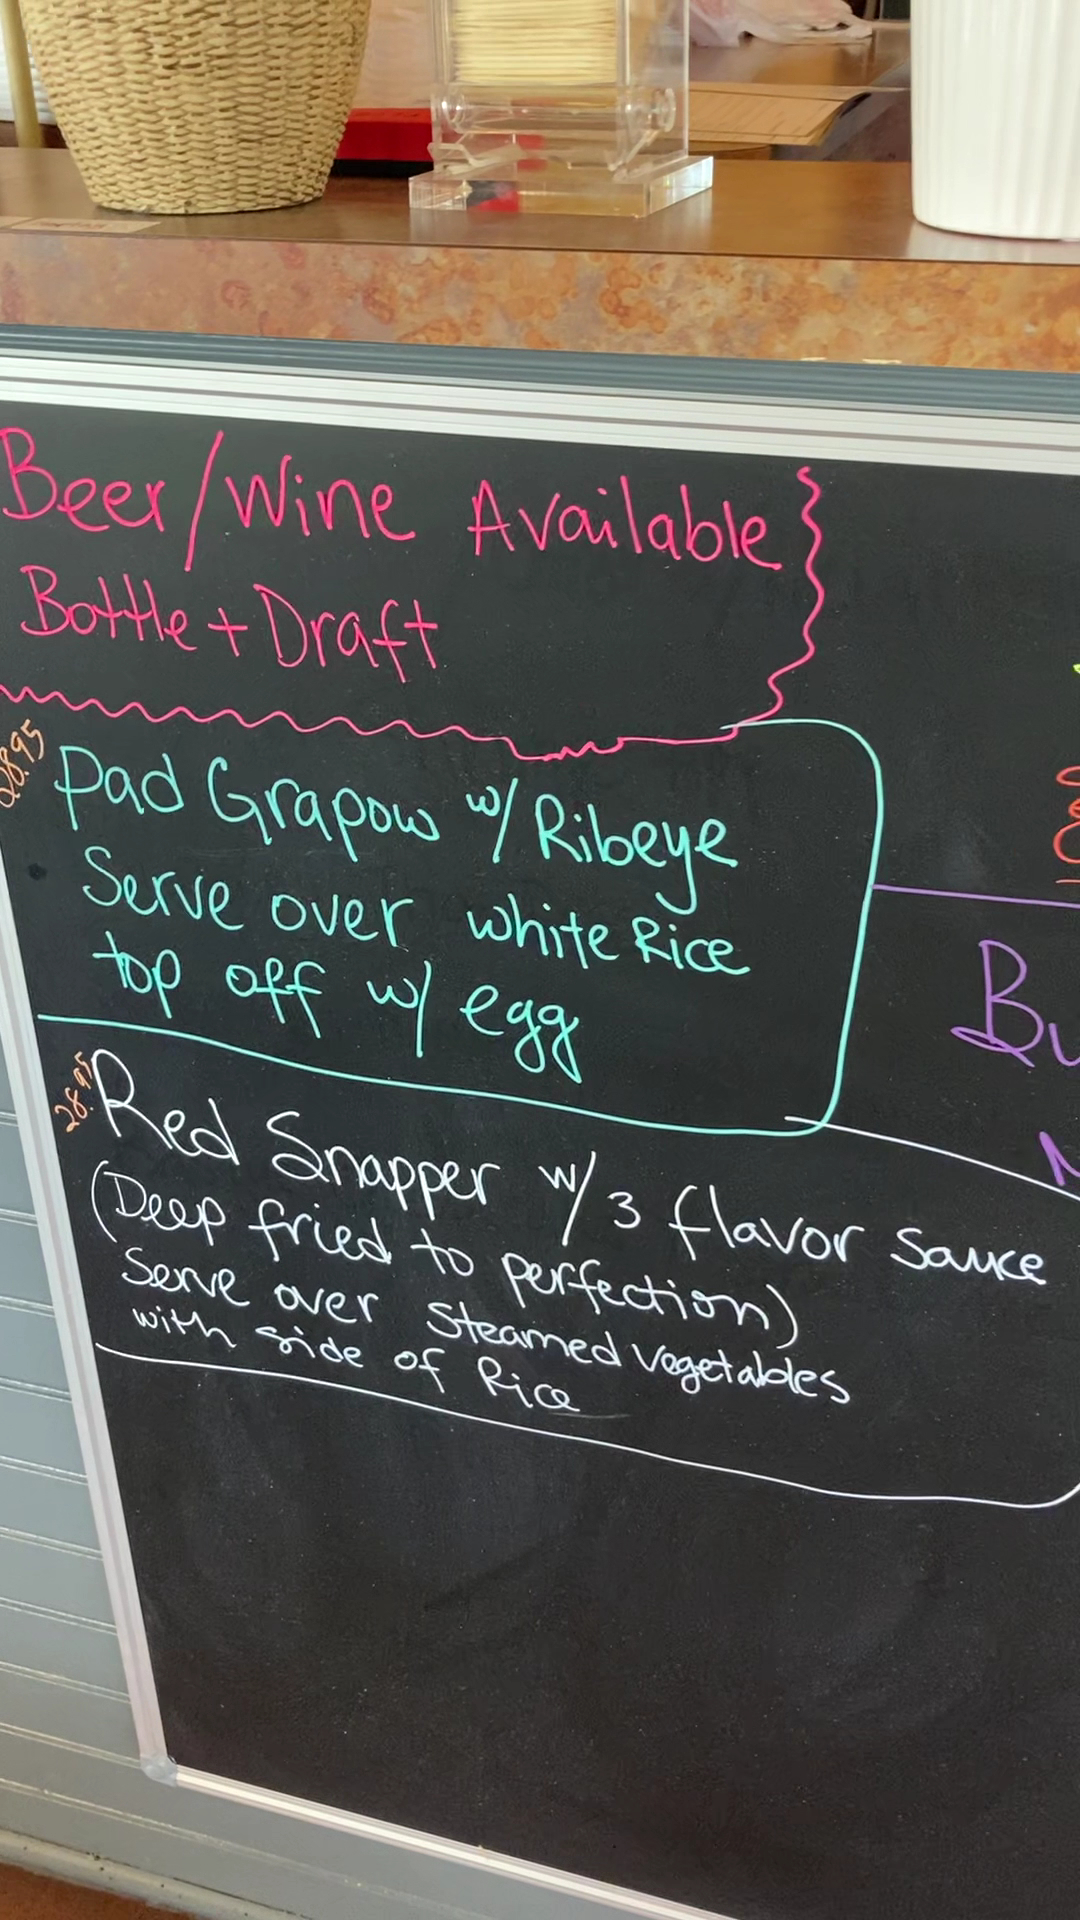 Beer/Wine Available
Bottle + Draft
28.95
Pad Grapow w/ Ribeye
Serve over white Rice
top off w/ egg
28.95
Red Snapper w/ 3 flavor sauce
(Deep fried to perfection)
Serve over Steamed Vegetables
with side of Rice
Bu